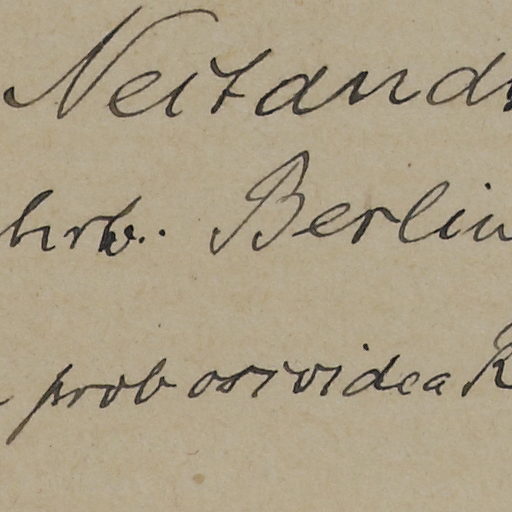 Neitand
hrb. Berlin
probosividea R